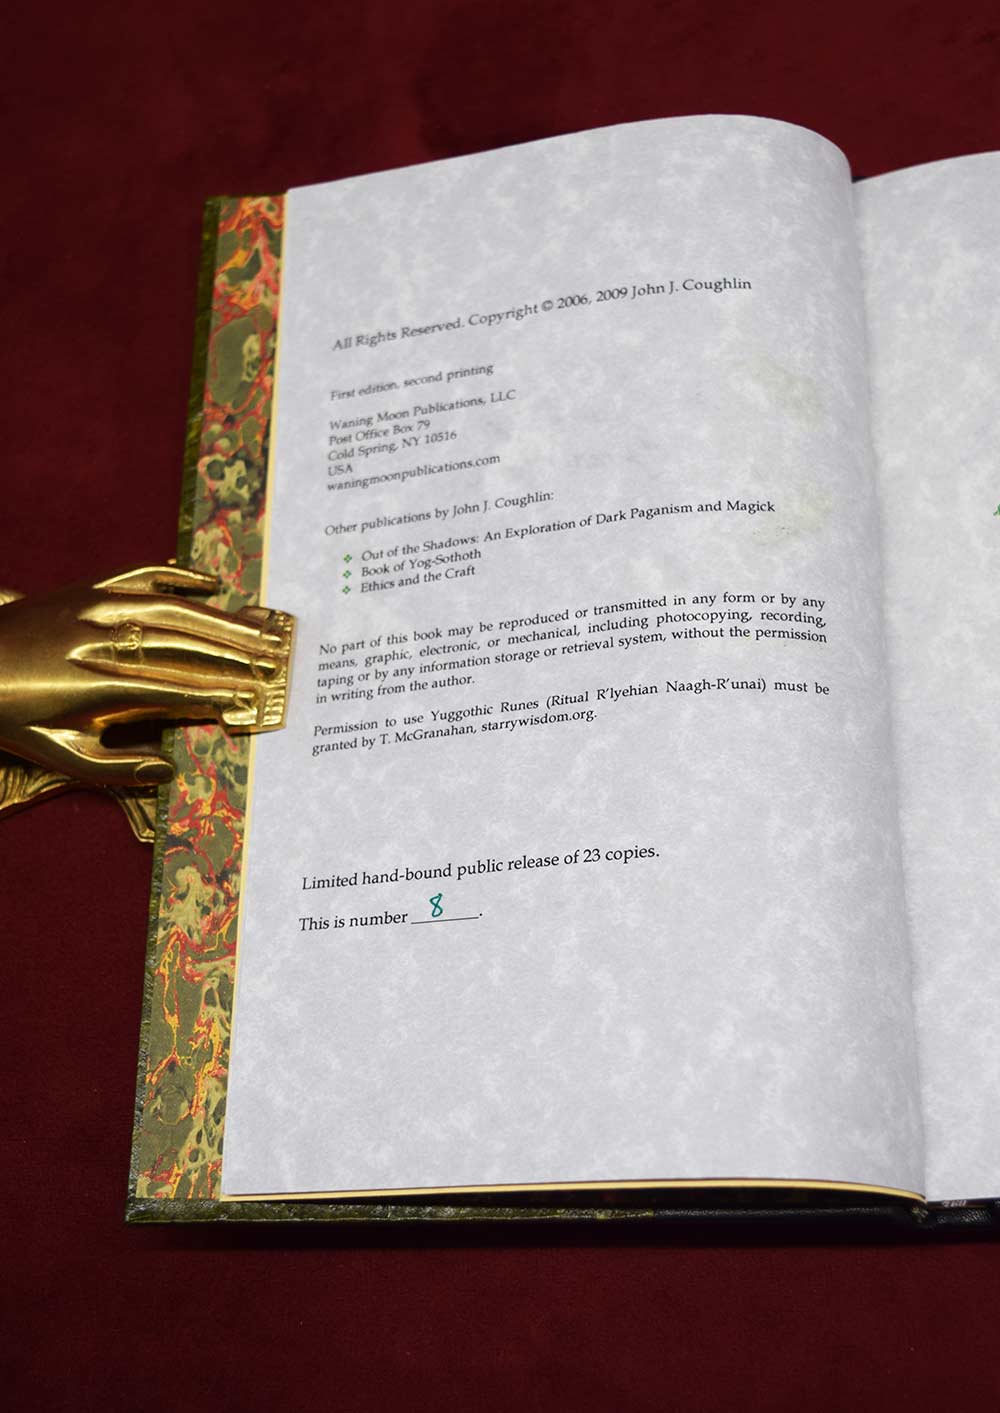 All Rights Reserved. Copyright © 2006, 2009 John J. Coughlin
First edition, second printing
Waning Moon Publications, LLC
Post Office Box 79
Cold Spring, NY 10516
USA
waningmoonpublications.com
Other publications by John J. Coughlin:
❖ Out of the Shadows: An Exploration of Dark Paganism and Magick
❖ Book of Yog-Sothoth
❖ Ethics and the Craft
No part of this book may be reproduced or transmitted in any form or by any
means, graphic, electronic, or mechanical, including photocopying, recording,
taping or by any information storage or retrieval system, without the permission
in writing from the author.
Permission to use Yuggothic Runes (Ritual R'lyehian Naagh-R'unai) must be
granted by T. McGranahan, starrywisdom.org.
Limited hand-bound public release of 23 copies.
This is number 8.